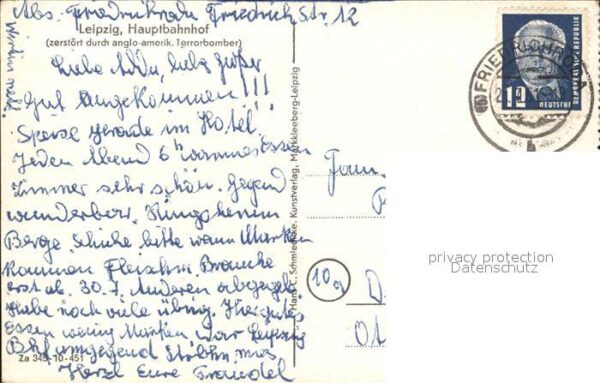 Abs. Friedrichroda Friedrich Str. 12
Leipzig, Hauptbahnhof
(zerstört durch anglo-amerik. Terrorbomber)
Liebe
Gut angekommen!!!
Speise gerade im Hotel.
Jeden Abend 6h warmes Essen
Zimmer sehr schön. Gegend
wunderbar. Ringsherum
Berge. Schicke bitte wenn Marken
kommen Fleischm. Brauche
erst ab 30.7. Anderen abgegeb.
Habe noch viele übrig. Hier gutes
Essen wenig Marken war Leipzig
Bhf umgegend
Herzl Eure Traudel
Za 345-10-451
Hans C. Schmiedicke, Kunstverlag, Markkleeberg-Leipzig
Fam.
10g
FRIEDRICHRO
12
DEUTSCHE
DEMOKRATISCHE REPUBLIK
privacy protection
Datenschutz